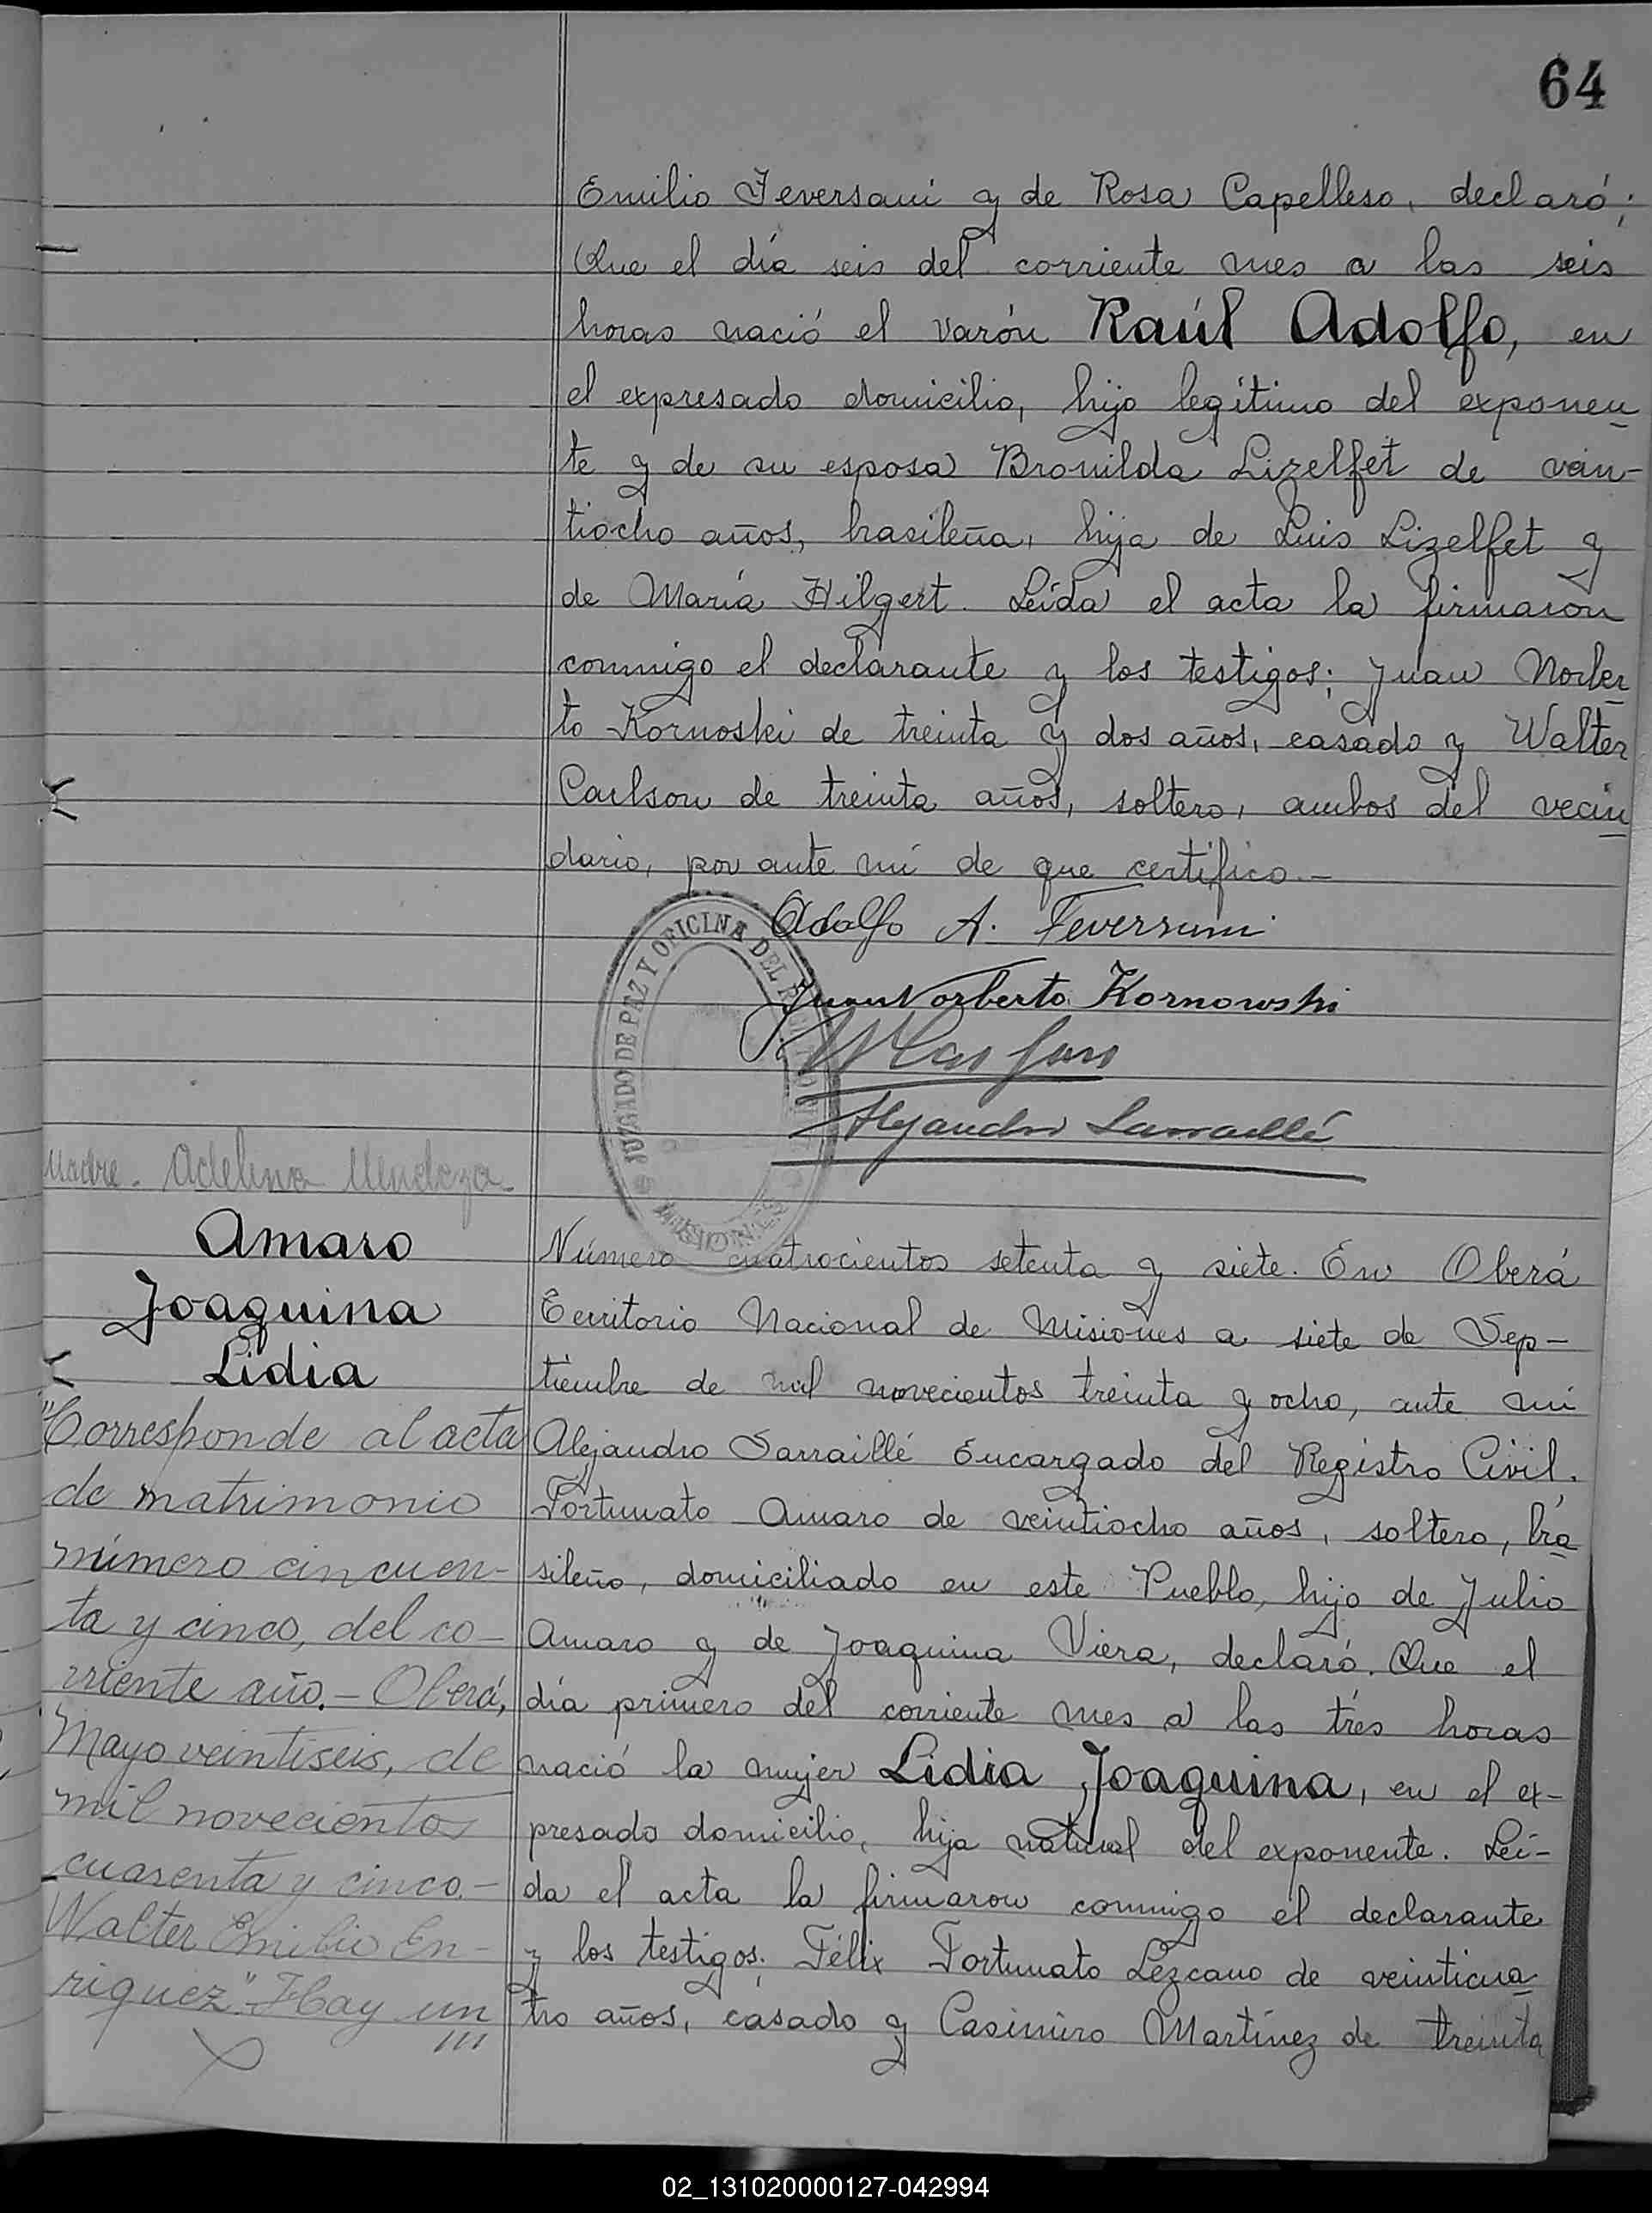 64
Emilio Feversani y de Rosa Capelleso, declaró;
Que el día seis del corriente mes a las seis
horas nació el varón Raúl Adolfo, en
el expresado domicilio, hijo legítimo del exponen
te y de su esposa Bronilda Lizelfet de vein-
tiocho años, brasileña, hija de Luis Lizelfet y
de María Hilgert. Leída el acta la firmaron
conmigo el declarante y los testigos; Juan Norber
to Kornoski de treinta y dos años, casado y Walter
Carlson de treinta años, soltero, ambos del vecin
dario, por ante mí de que certifico.-
Adolfo A. Feversani
Juan Norberto Kornowski
Alejandro Sarraillé
JUZGADO DE PAZ Y OFICINA DEL
MISIONES
Madre. Adelina Mendoza
Amaro
Joaquina
Lidia
"Corresponde al acta
de matrimonio
número cincuen-
ta y cinco, del co-
rriente año.- Oberá,
Mayo veintiseis, de
mil novecientos
cuarenta y cinco.-
Walter Emilio En-
riquez". Hay un
///
Número cuatrocientos setenta y siete. En Oberá
Territorio Nacional de Misiones a siete de Sep-
tiembre de mil novecientos treinta y ocho, ante mí
Alejandro Sarraillé Encargado del Registro Civil.
Fortunato Amaro de veintiocho años, soltero, bra
sileño, domiciliado en este Pueblo, hijo de Julio
Amaro y de Joaquina Viera, declaró. Que el
día primero del corriente mes a las trés horas
nació la mujer Lidia Joaquina, en el ex-
presado domicilio, hija natural del exponente. Leí-
da el acta la firmaron conmigo el declarante
y los testigos; Félix Fortunato Lezcano de veinticua
tro años, casado y Casimiro Martínez de treinta
02_131020000127-042994